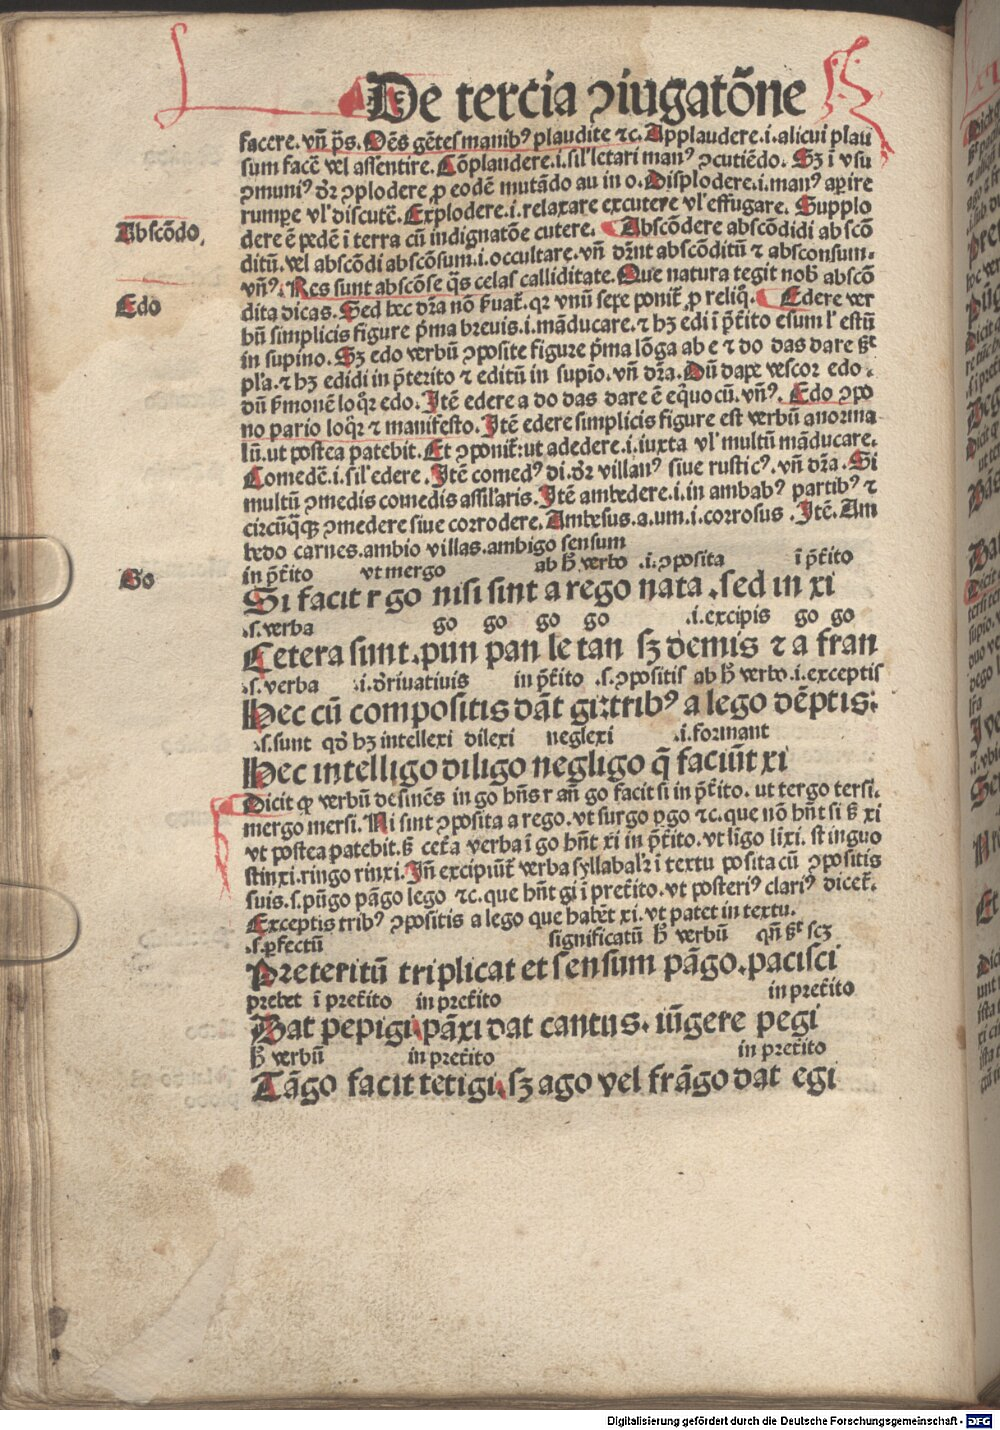 De tercia ꝯiugatõne
facere. vñ p̃s. Oẽs gẽtes manibꝰ plaudite ⁊c. Applaudere .i. alicui plau
sum facẽ vel assentire. Cõplaudere .i. sil' letari manꝰ ꝯcutiẽdo. Sꝫ ĩ vsu
ꝯmuniꝰ dꝛ ꝯplodere ꝓ eodẽ mutãdo au in o. Displodere .i. manꝰ aperire
rumpe vl' discutẽ. Explodere .i. relaxare excutere vl' effugare. Supplo
dere ẽ pedẽ ĩ terra cũ indignatõe cutere. Abscõdere abscõdidi abscõ
Abscõdo.
ditũ. vel abscõdi abscõsum .i. occultare. vñ dr̃nt abscõditũ ⁊ absconsum.
vñꝰ. Res sunt abscõse q̃s celas calliditate. Que natura tegit nob̃ abscõ
dita dicas. Sed hec dr̃a nõ ẽuat. qꝛ vnũ sepe ponit ꝓ reliq̃. Edere ver
Edo
bũ simplicis figure p̃ma breuis .i. mãducare. ⁊ hꝫ edi ĩ p̃tito esum l' estũ
in supino. Sꝫ edo verbũ ꝯposite figure p̃ma lõga ab e ⁊ do das dare
pl'a. ⁊ hꝫ edidi in p̃terito ⁊ editũ in supĩo. vñ dr̃a. Dũ dape vescor edo.
dũ ẽmonẽ loq̃r edo. Itẽ edere a do das dare ẽ eq̃uocũ. vñꝰ. Edo ꝯpo
no pario loq̃r ⁊ manifesto. Itẽ edere simplicis figure est verbũ anorma
lũ. ut postea patebit. Et ꝯponit: ut adedere .i. iuxta vl' multũ mãducare.
Comedẽ .i. sil' edere. Itẽ comedꝰ di. dꝛ villanꝰ siue rusticꝰ. vñ dr̃a. Si
multũ ꝯmedis comedis assil'aris. Itẽ ambedere .i. in ambabꝰ partibꝰ ⁊
circũq̃qꝫ ꝯmedere siue corrodere. Ambesus .a. um .i. corrosus. Itẽ. Am
bedo carnes. ambio villas. ambigo sensum
in p̃tito vt mergo ab h̃ verbo .i. ꝯposita ĩ p̃tito
Go
Si facit r go nisi sint a rego nata . sed in xi
.s. verba go go go go .i. excipis go go
Cetera sunt . pun pan le tan sꝫ demis ⁊ a fran
.s. verba .i. d'riuatiuis in p̃tito .s. ꝯpositis ab h̃ verbo .i. exceptis
Hec cũ compositis dãt gi: tribꝰ a lego dẽptis:
.s. sunt qd̓ hꝫ intellexi dilexi neglexi .i. formant
Hec intelligo diligo negligo q̃ faciũt xi
Dicit ꝙ verbũ desinẽs in go hñs r añ go facit si in p̃tito. ut tergo tersi.
mergo mersi. Ni sint ꝯposita a rego. vt surgo ꝑgo ⁊c. que nõ hñt si ẜ xi
vt postea patebit. ẜ cet̃a verba ĩ go hñt xi in p̃tito. vt lĩgo lixi. stinguo
stinxi. ringo rinxi. Iñ excipiũt verba syllabal'r ĩ textu posita cũ ꝯpositis
suis. s. pũgo pãgo lego ⁊c. que hñt gi ĩ pretito. vt posteriꝰ clariꝰ dicet.
Exceptis tribꝰ ꝯpositis a lego que habẽt xi. vt patet in textu.
.s. ꝑfectũ significatũ h̃ verbũ qñ ẜt scꝫ
Preteritũ triplicat et sensum pãgo . pacisci
prebet ĩ pretito in pretito in pretito
Dat pepigi . pãxi dat cantus . iũgere pegi
h̃ verbũ in pretito in pretito
Tãgo facit tetigi . sꝫ ago vel frãgo dat egi
Digitalisierung gefördert durch die Deutsche Forschungsgemeinschaft - DFG